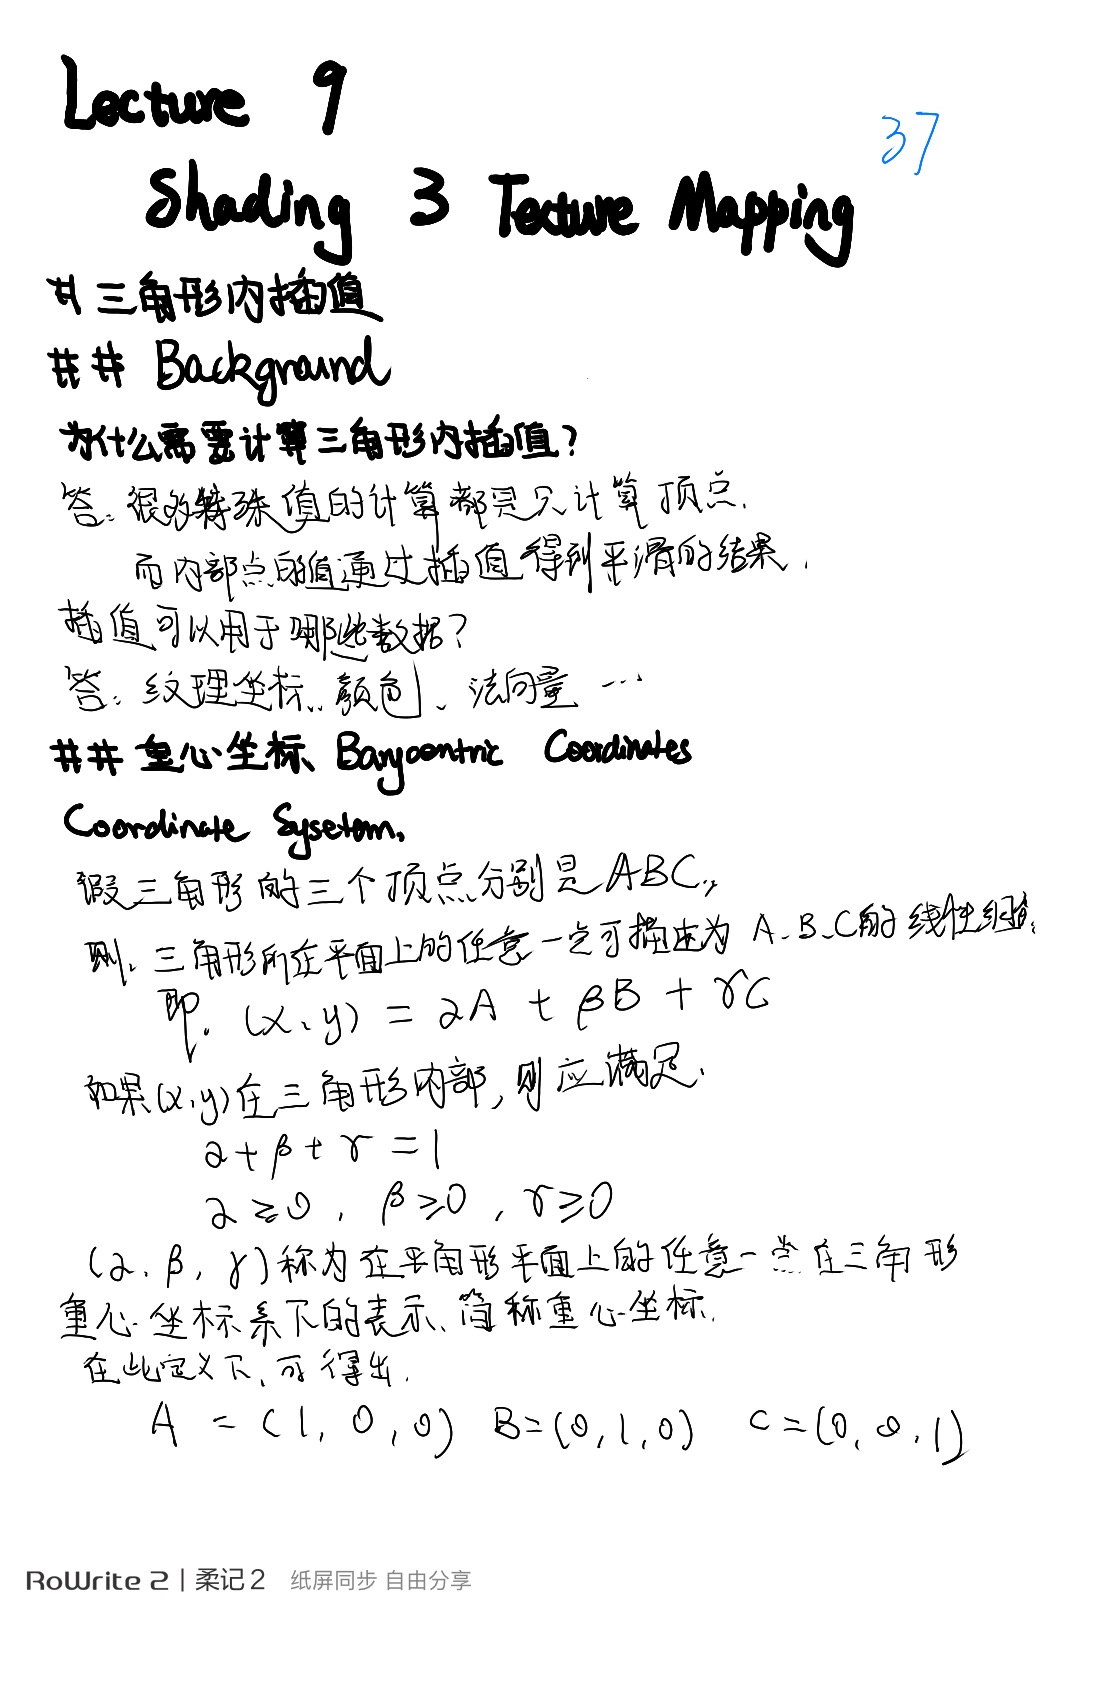 Lecture 9
37
Shading 3 Texture Mapping
# 三角形内插值
## Background
为什么需要计算三角形内插值?
答: 很多特殊值的计算都是只计算顶点.
而内部点的值通过插值得到平滑的结果.
插值可以用于哪些数据?
答: 纹理坐标、颜色、法向量 ...
## 重心坐标、Barycentric Coordinates
Coordinate Sysetem.
假三角形的三个顶点分别是ABC,
则、三角形所在平面上的任意一点可描述为 A、B、C的线性组合.
即. (x、y) = αA + βB + γC
如果(x,y)在三角形内部, 则应满足.
α+β+γ=1
α≥0, β≥0, γ≥0
(α、β, γ)称为在平角形平面上的任意一点在三角形
重心坐标系下的表示、简称重心坐标.
在此定义下、可得出.
A = (1, 0, 0) B=(0,1,0) C=(0,0,1)
RoWrite 2 | 柔记2 纸屏同步 自由分享